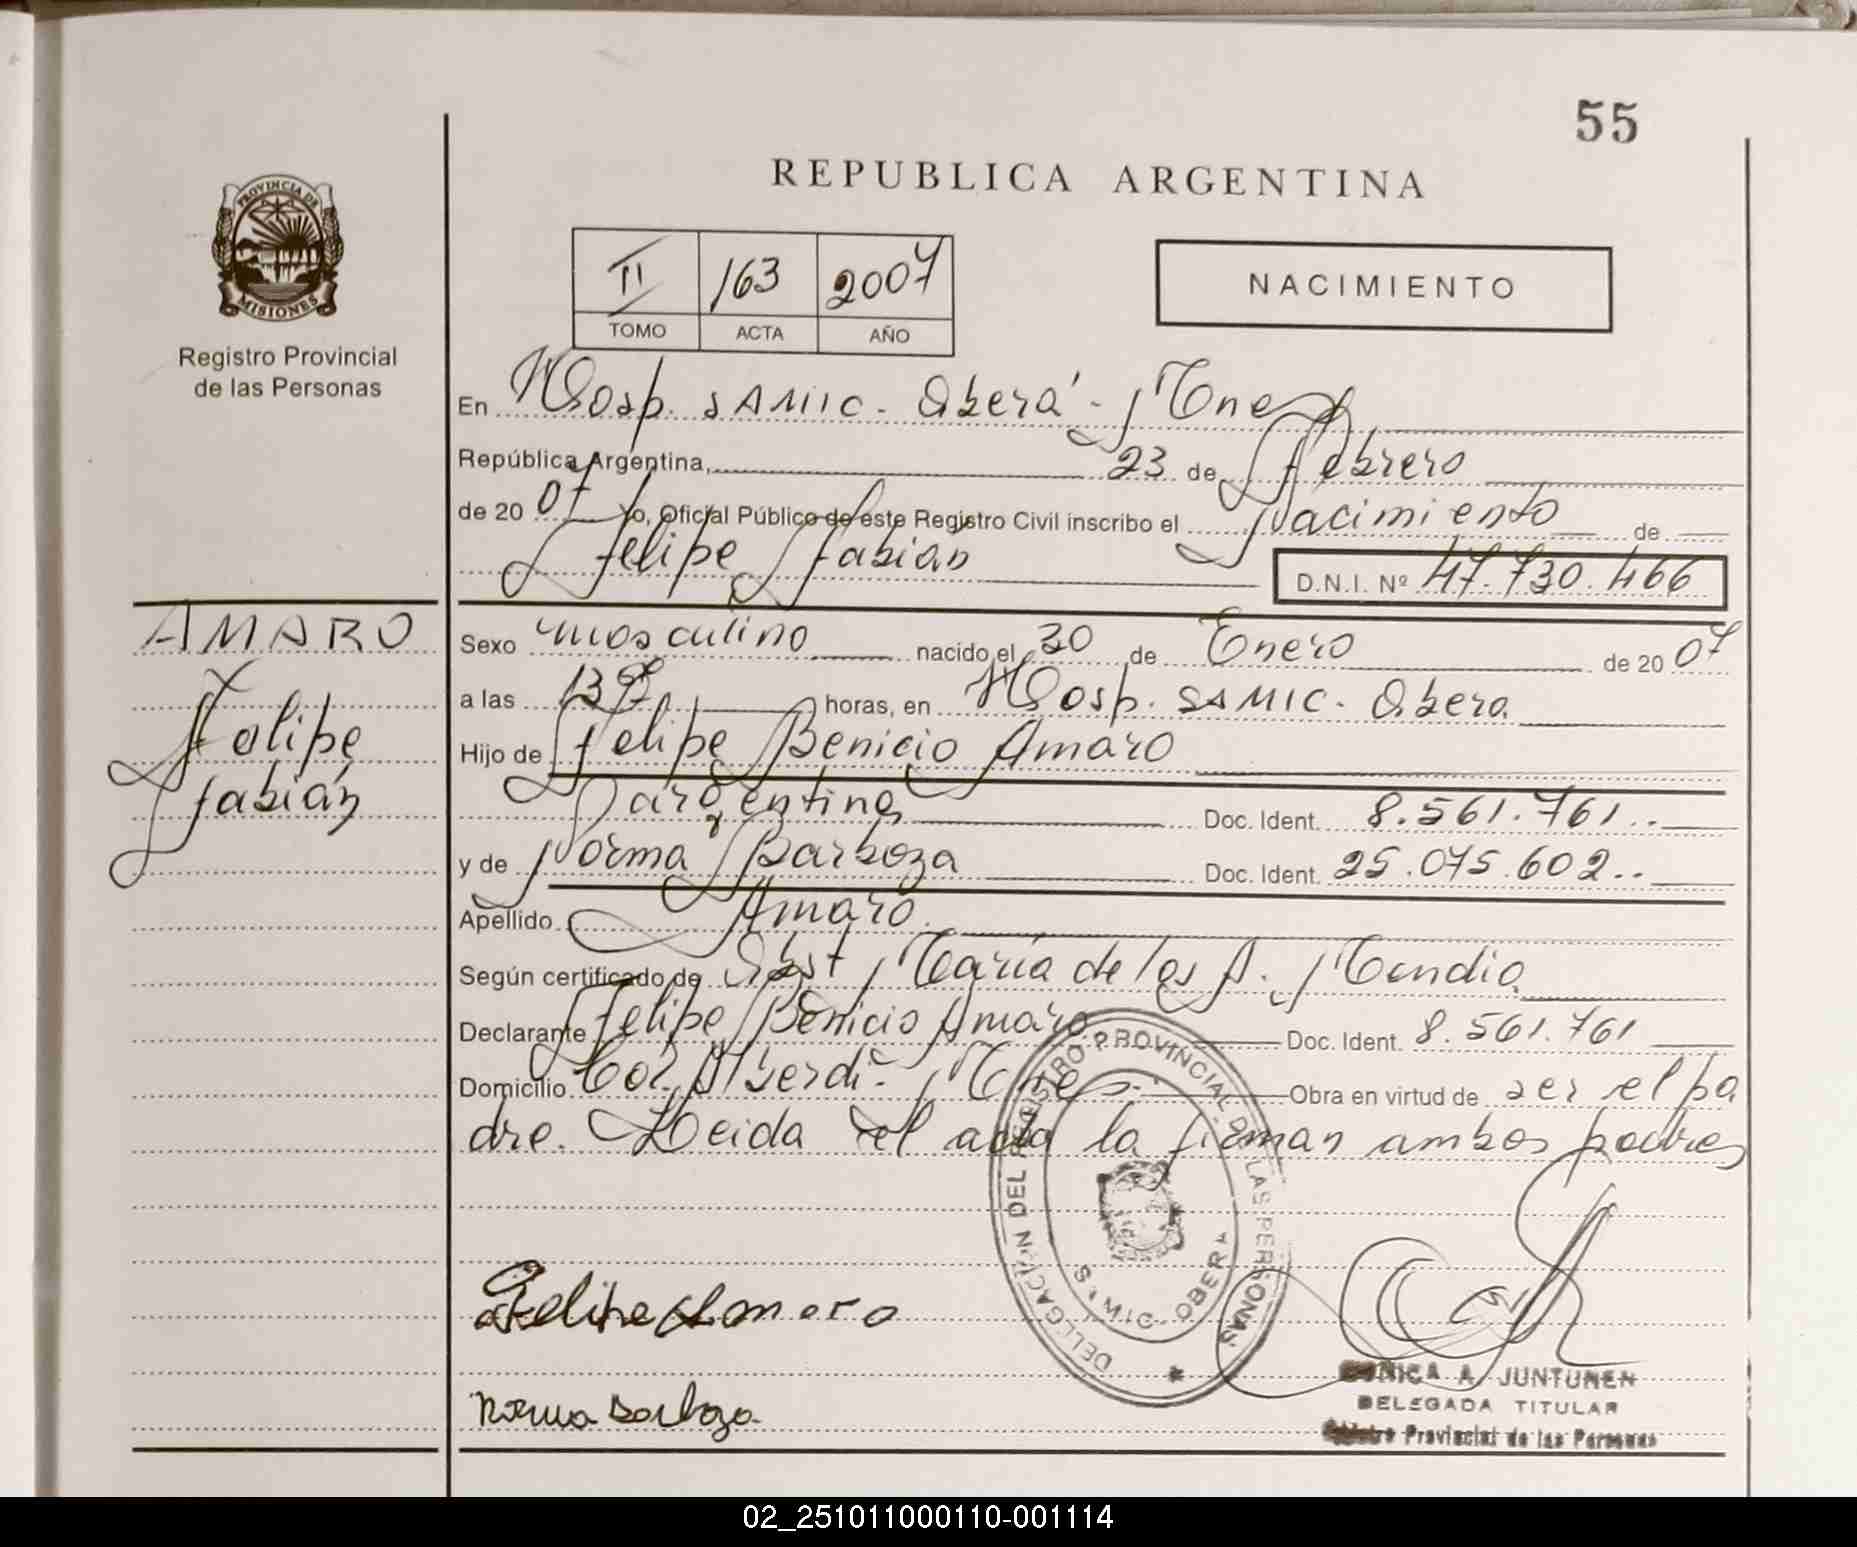 55
REPUBLICA ARGENTINA
PROVINCIA DE
MISIONES
Registro Provincial
de las Personas
II 163 2007
TOMO ACTA AÑO
NACIMIENTO
En Hosp. SAMIC - Oberá - Mnes
República Argentina, 23 de Febrero
de 20 07 Yo, Oficial Público de este Registro Civil inscribo el Nacimiento de
Felipe Fabián D.N.I. Nº 47.730.466
AMARO
Felipe
Fabián
Sexo masculino nacido el 30 de Enero de 20 07
a las horas, en Hosp. SAMIC - Oberá
Hijo de Felipe Benicio Amaro
argentina Doc. Ident. 8.561.761..
y de Norma Barboza Doc. Ident. 25.075.602..
Apellido Amaro
Según certificado de Obst María de los A. Mendia
Declarante Felipe Benicio Amaro Doc. Ident. 8.561.761
Domicilio Col. Alberdi - Mnes. Obra en virtud de ser el pa
dre. Leida el acta la firman ambos padres
DELEGACION DEL REGISTRO PROVINCIAL DE LAS PERSONAS
SAMIC - OBERA
Felipe Amaro
Norma Barboza
MONICA A. JUNTUNEN
DELEGADA TITULAR
Registro Provincial de las Personas
02_251011000110-001114